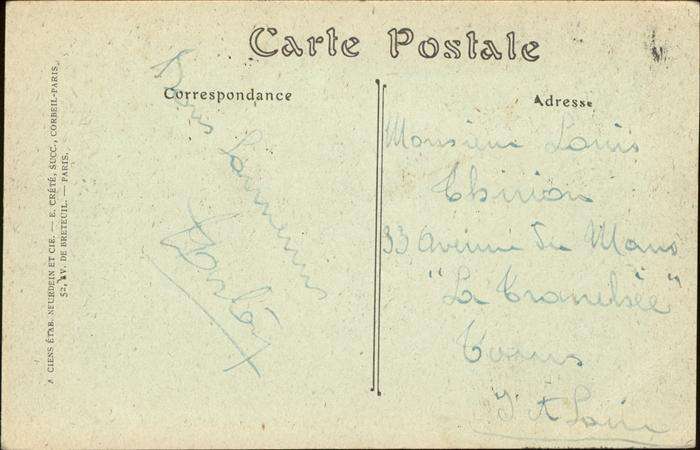 Carte Postale
Correspondance
Adresse
A CIENS ÉTAB. NEURDEIN ET CIE. — E. CRÉTÉ, SUCC., CORBEIL-PARIS.
52, AV. DE BRETEUIL. — PARIS.
Bons
Monsieur Louis
Thirion
33 Avenue du Mans
"La Tranchée"
Tours
I et Loire